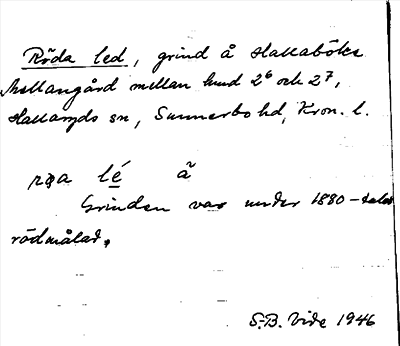 Röda led, grind å Hallaböke
Mellangård mellan lund 2⁶ och 2⁷,
Hallaryds sn, Sunnerbo hd, Kron. l.
lé ã
Grinden var under 1880-talet
rödmålad.
S.-B. Vide 1946